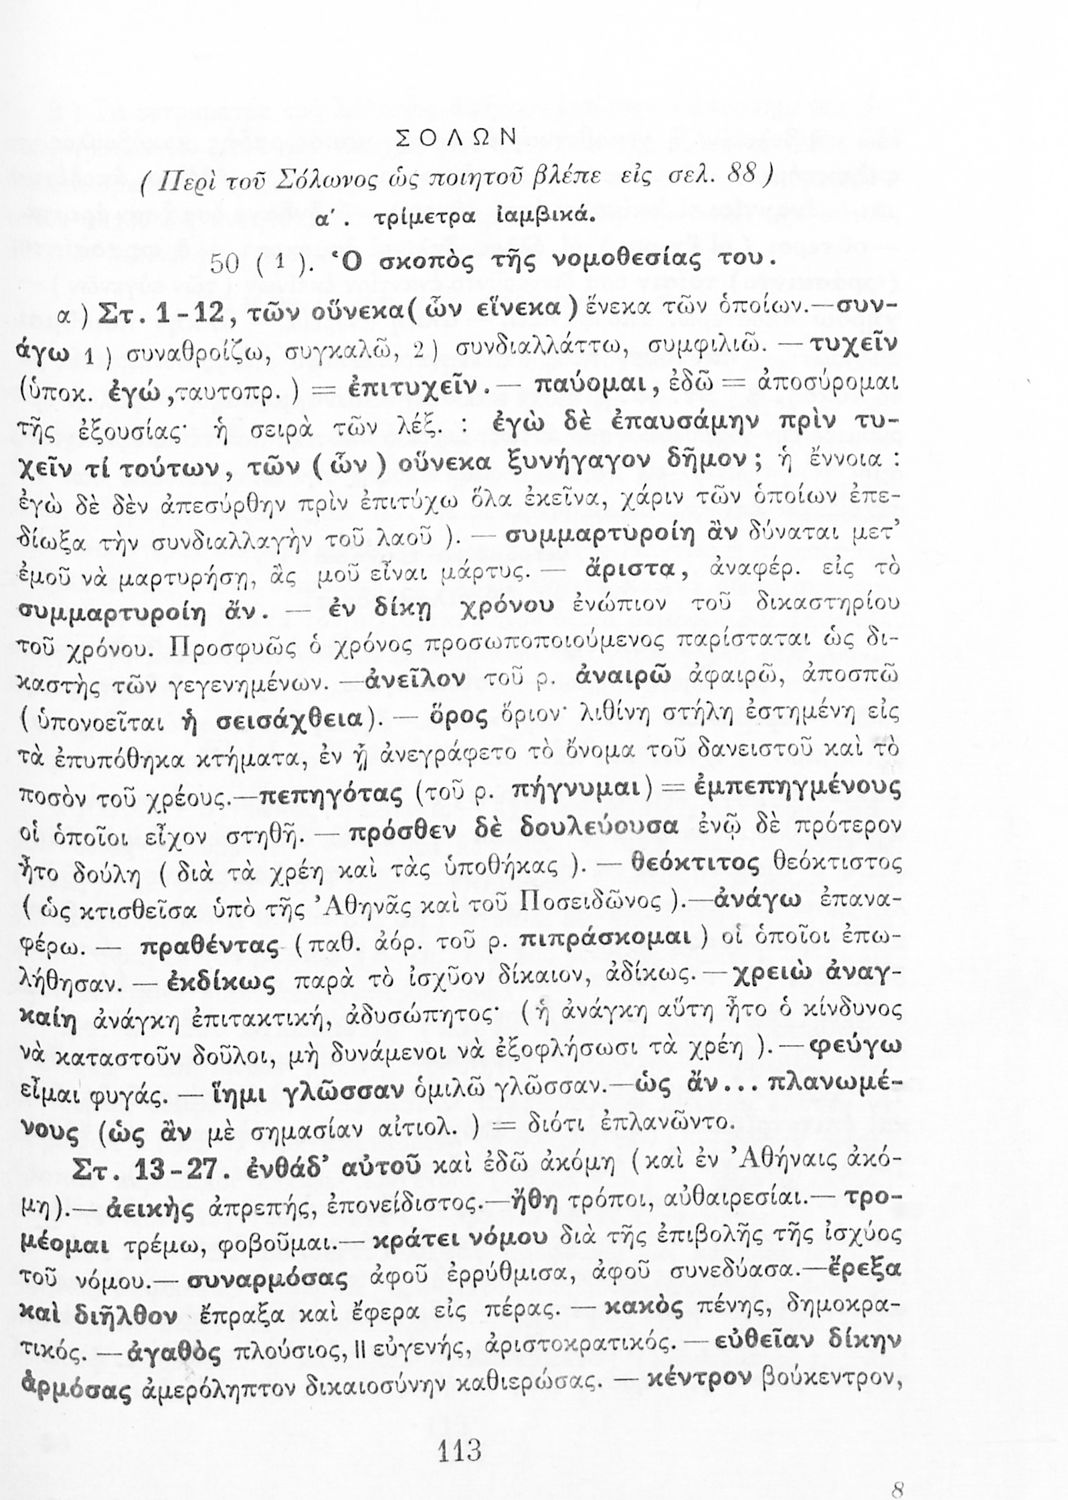 ΣΟΛΩΝ
( Περὶ τοῦ Σόλωνος ὡς ποιητοῦ βλέπε εἰς σελ. 88 )
α΄. τρίμετρα ἰαμβικά.
50 ( 1 ). Ὁ σκοπὸς τῆς νομοθεσίας του.
α ) Στ. 1-12, τῶν οὕνεκα( ὧν εἵνεκα ) ἕνεκα τῶν ὁποίων.—συν-
άγω 1 ) συναθροίζω, συγκαλῶ, 2 ) συνδιαλλάττω, συμφιλιῶ. — τυχεῖν
(ὑποκ. ἐγώ ,ταυτοπρ. ) = ἐπιτυχεῖν.— παύομαι, ἐδῶ = ἀποσύρομαι
τῆς ἐξουσίας· ἡ σειρὰ τῶν λέξ. : ἐγὼ δὲ ἐπαυσάμην πρὶν τυ-
χεῖν τί τούτων, τῶν ( ὧν ) οὕνεκα ξυνήγαγον δῆμον; ἡ ἔννοια :
ἐγὼ δὲ δὲν ἀπεσύρθην πρὶν ἐπιτύχω ὅλα ἐκεῖνα, χάριν τῶν ὁποίων ἐπε-
δίωξα τὴν συνδιαλλαγὴν τοῦ λαοῦ ). — συμμαρτυροίη ἂν δύναται μετ’
ἐμοῦ νὰ μαρτυρήσῃ, ἂς μοῦ εἶναι μάρτυς. — ἄριστα, ἀναφέρ. εἰς τὸ
συμμαρτυροίη ἄν. — ἐν δίκῃ χρόνου ἐνώπιον τοῦ δικαστηρίου
τοῦ χρόνου. Προσφυῶς ὁ χρόνος προσωποποιούμενος παρίσταται ὡς δι-
καστὴς τῶν γεγενημένων. —ἀνεῖλον τοῦ ρ. ἀναιρῶ ἀφαιρῶ, ἀποσπῶ
( ὑπονοεῖται ἡ σεισάχθεια). — ὅρος ὅριον· λιθίνη στήλη ἐστημένη εἰς
τὰ ἐπυπόθηκα κτήματα, ἐν ᾗ ἀνεγράφετο τὸ ὄνομα τοῦ δανειστοῦ καὶ τὸ
ποσὸν τοῦ χρέους.—πεπηγότας (τοῦ ρ. πήγνυμαι) = ἐμπεπηγμένους
οἱ ὁποῖοι εἶχον στηθῆ. — πρόσθεν δὲ δουλεύουσα ἐνῷ δὲ πρότερον
ἦτο δούλη ( διὰ τὰ χρέη καὶ τὰς ὑποθήκας ). — θεόκτιτος θεόκτιστος
( ὡς κτισθεῖσα ὑπὸ τῆς Ἀθηνᾶς καὶ τοῦ Ποσειδῶνος ).—ἀνάγω ἐπανα-
φέρω. — πραθέντας (παθ. ἀόρ. τοῦ ρ. πιπράσκομαι ) οἱ ὁποῖοι ἐπω-
λήθησαν. — ἐκδίκως παρὰ τὸ ἰσχῦον δίκαιον, ἀδίκως. — χρειὼ ἀναγ-
καίη ἀνάγκη ἐπιτακτική, ἀδυσώπητος· (ἡ ἀνάγκη αὕτη ἦτο ὁ κίνδυνος
νὰ καταστοῦν δοῦλοι, μὴ δυνάμενοι νὰ ἐξοφλήσωσι τὰ χρέη ). — φεύγω
εἶμαι φυγάς. — ἵημι γλῶσσαν ὁμιλῶ γλῶσσαν.—ὡς ἄν... πλανωμέ-
νους (ὡς ἂν μὲ σημασίαν αἰτιολ. ) = διότι ἐπλανῶντο.
Στ. 13-27. ἐνθάδ’ αὐτοῦ καὶ ἐδῶ ἀκόμη (καὶ ἐν Ἀθήναις ἀκό-
μη).— ἀεικὴς ἀπρεπής, ἐπονείδιστος.—ἤθη τρόποι, αὐθαιρεσίαι.— τρο-
μέομαι τρέμω, φοβοῦμαι.— κράτει νόμου διὰ τῆς ἐπιβολῆς τῆς ἰσχύος
τοῦ νόμου.— συναρμόσας ἀφοῦ ἐρρύθμισα, ἀφοῦ συνεδύασα.—ἔρεξα
καὶ διῆλθον ἔπραξα καὶ ἔφερα εἰς πέρας. — κακὸς πένης, δημοκρα-
τικός. —ἀγαθὸς πλούσιος, ΙΙ εὐγενής, ἀριστοκρατικός. — εὐθεῖαν δίκην
ἁρμόσας ἀμερόληπτον δικαιοσύνην καθιερώσας. — κέντρον βούκεντρον,
113
8